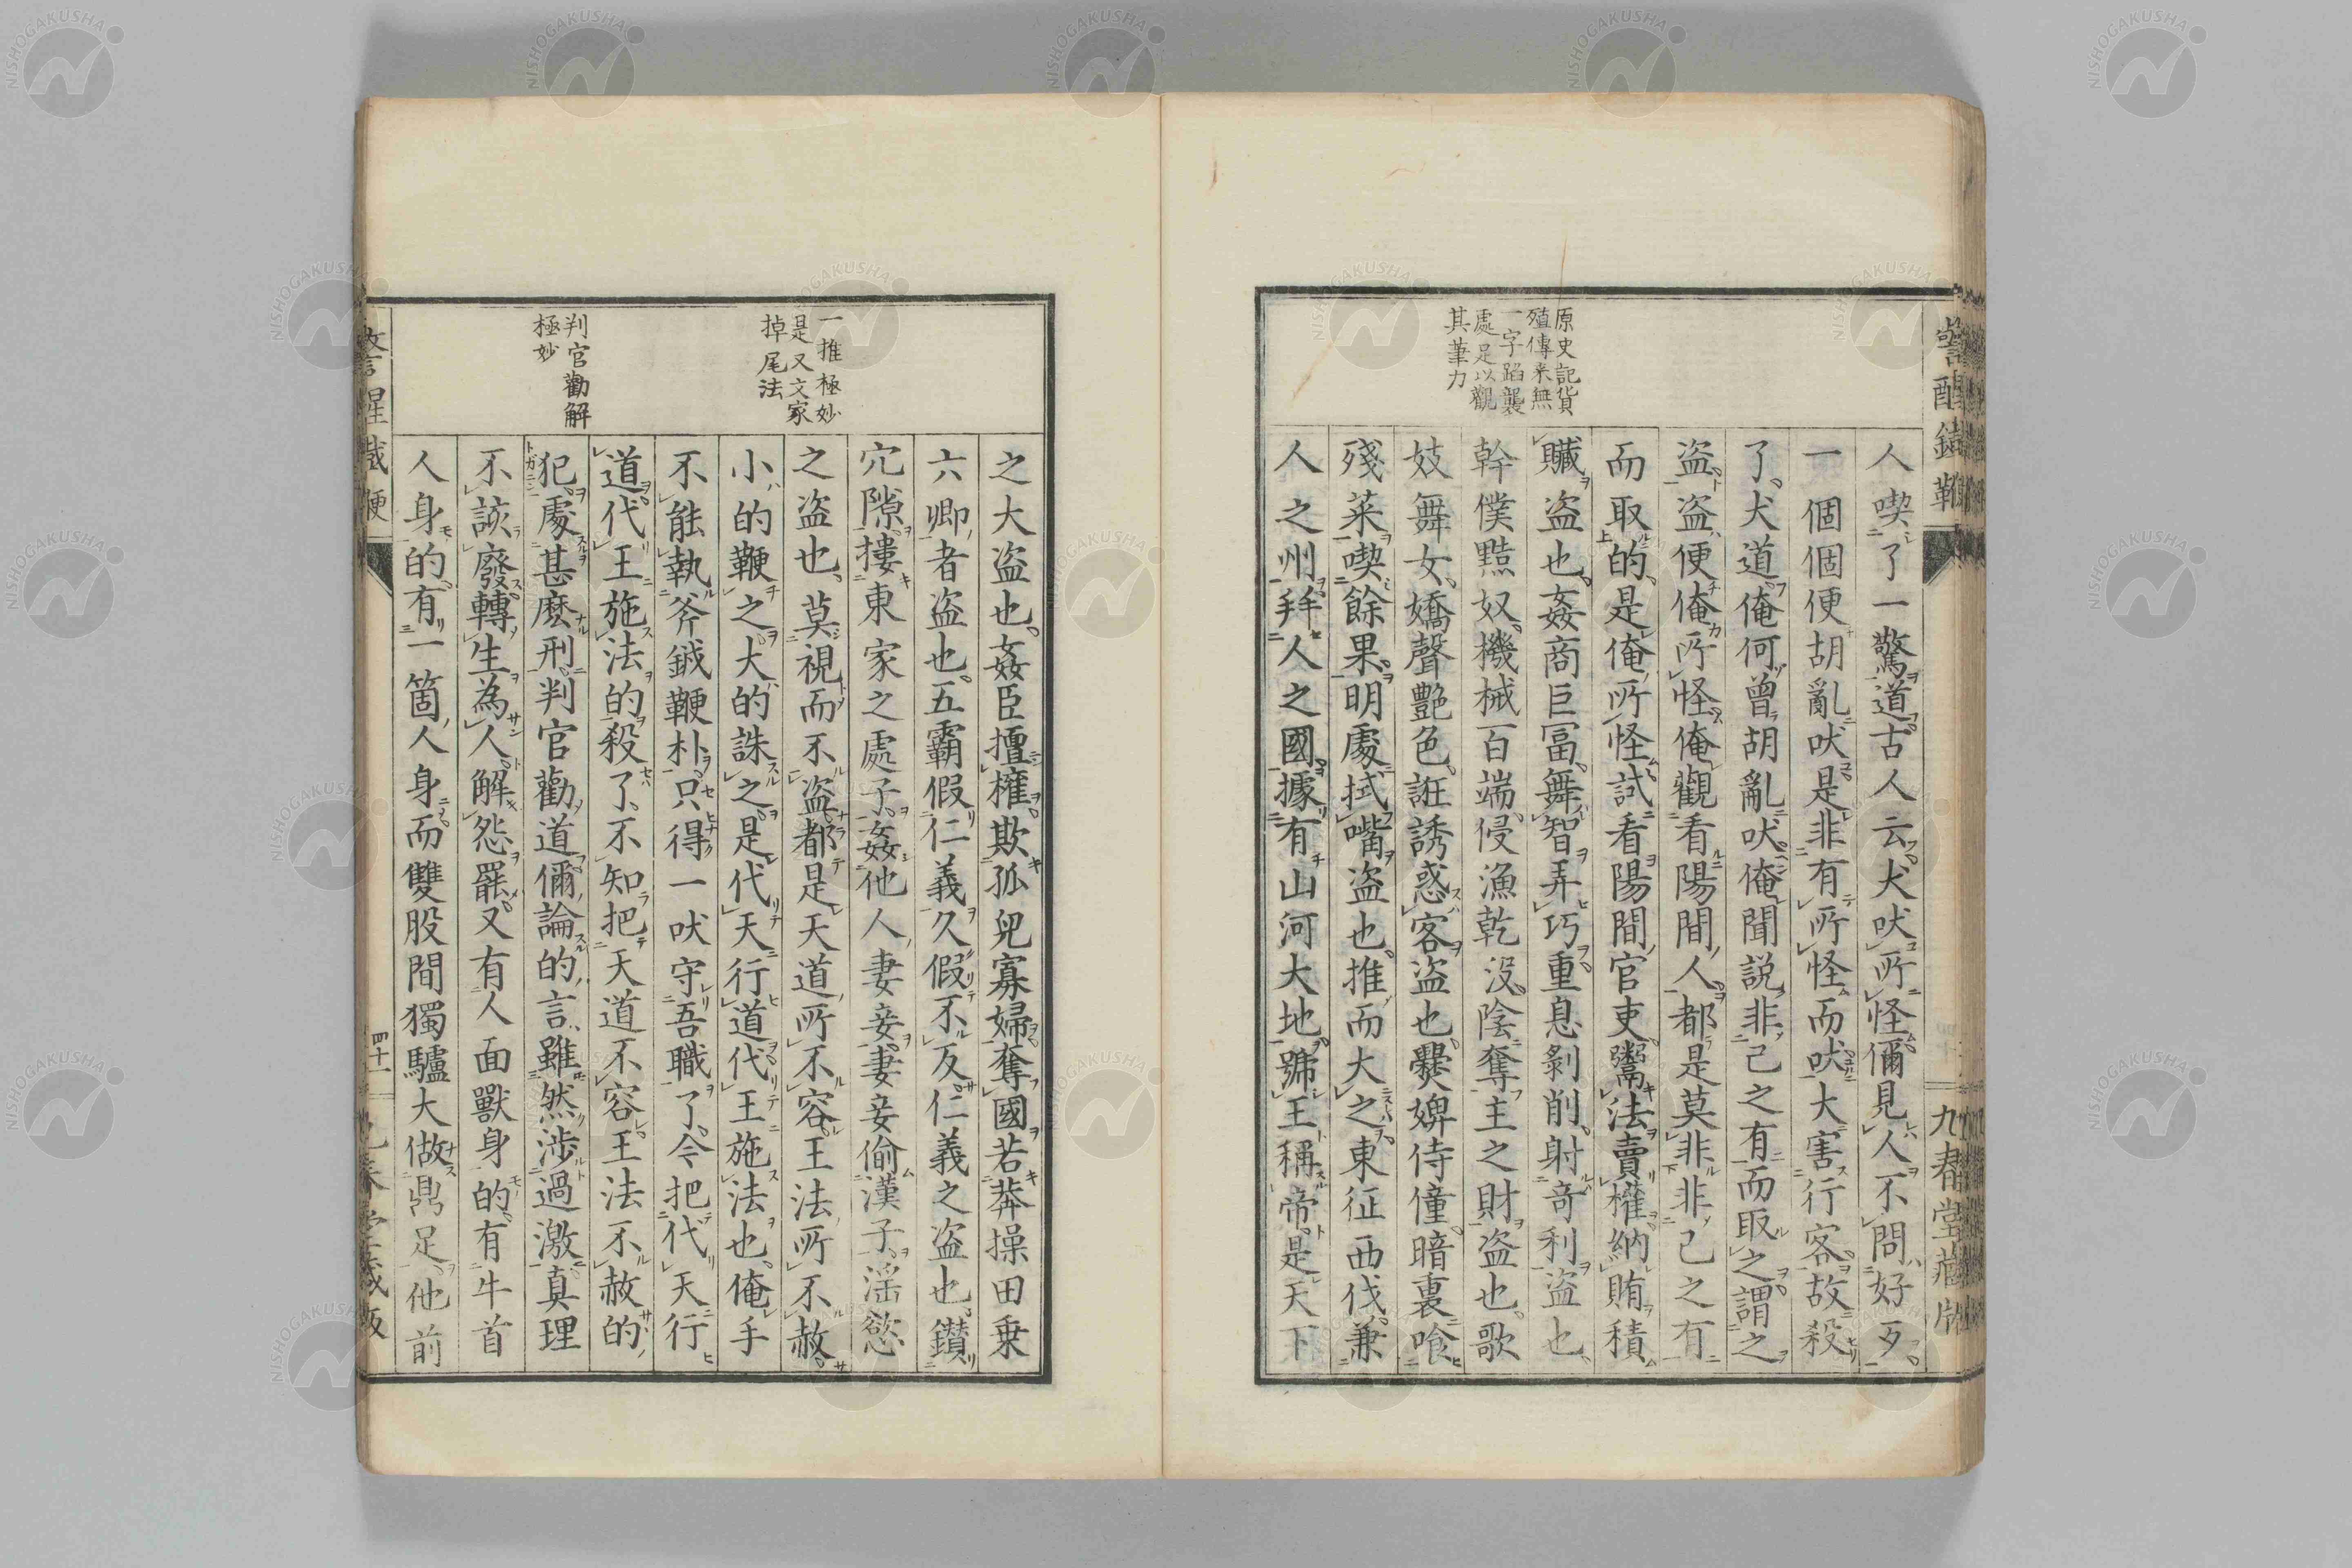 警醒鐵鞭
九春堂藏版
原史記貨
殖傳來無
一字蹈襲
處足以觀
其筆力
人喫了一驚道古人云犬吠所怪儞見人不問好歹
一個個便胡亂吠是非有所怪而吠大害行客故殺
了犬道俺何曾胡亂吠俺聞説非己之有而取之謂之
盗盗便俺所怪俺觀看陽間人都是莫非非己之有
而取的是俺所怪試看陽間官吏鬻法賣權納賄積
贓盗也姦商巨冨舞智弄巧重息剝削射竒利盗也
幹僕黠奴機械百端侵漁乾没陰奪主之財盗也歌
妓舞女嬌聲艷色誑誘惑客盗也爨婢侍僮暗裏喰
殘菜喫餘果明處拭嘴盗也推而大之東征西伐兼
人之州幷人之國據有山河大地號王稱帝是天下
一推極妙
是又文家
掉尾法
判官勸解
極妙
之大盗也姦臣擅權欺孤兒寡婦奪國若莽操田乗
六卿者盗也五霸假仁義久假不反仁義之盗也鑚
穴隙摟東家之處子姦他人妻妾妻妾偷漢子滛慾
之盗也莫視而不盗都是天道所不容王法所不赦
小的鞭之大的誅之是代天行道代王施法也俺手
不能執斧鉞鞭朴只得一吠守吾職了今把代天行
道代王施法的殺了不知把天道不容王法不赦的
犯處甚麽刑判官勸道儞論的言雖然渉過激真理
不該廢轉生為人解怨罷又有人面獸身的有牛首
人身的有一箇人身而雙股間獨驢大做鼎足他前
四十一